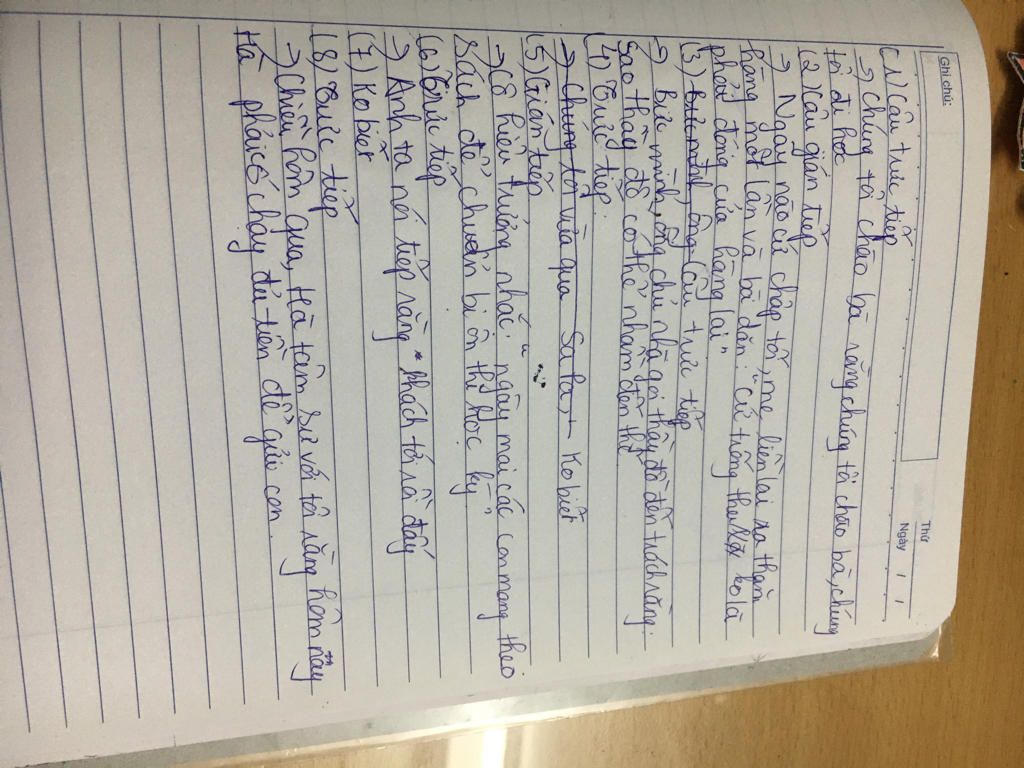 Ghi chú:
Thứ
Ngày / /
(1) Câu trực tiếp
→ Chúng tôi chào bà rằng chúng tôi chào bà, chúng
tôi đi học
(2) Câu gián tiếp
→ Ngày nào cứ chập tối, mẹ liền lại ra thăm
hàng một lần và bà dặn: "cứ trông thu ko là
phải đóng cửa hàng lại"
(3) Bức mình, ông Câu trực tiếp
→ Bức mình, ông chủ nhà gọi thầy đồ đến trách rằng:
Sao thầy đồ có thể nhầm đến thế
(4) Trực tiếp:
→ Chúng tôi vừa qua Sa Pa, Ko biết
(5) Gián tiếp
→ Cô hiệu trưởng nhắc: " ngày mai các con mang theo
sách để chuẩn bị ôn thi học kỳ"
(6) Trực tiếp
→ Anh ta nói tiếp rằng khách tới rồi đấy
(7) Ko biết
(8) Trực tiếp
→ Chiều hôm qua, Hà tâm sự với tôi rằng hôm nay
Hà phải cố chạy đủ tiền để gửi con.